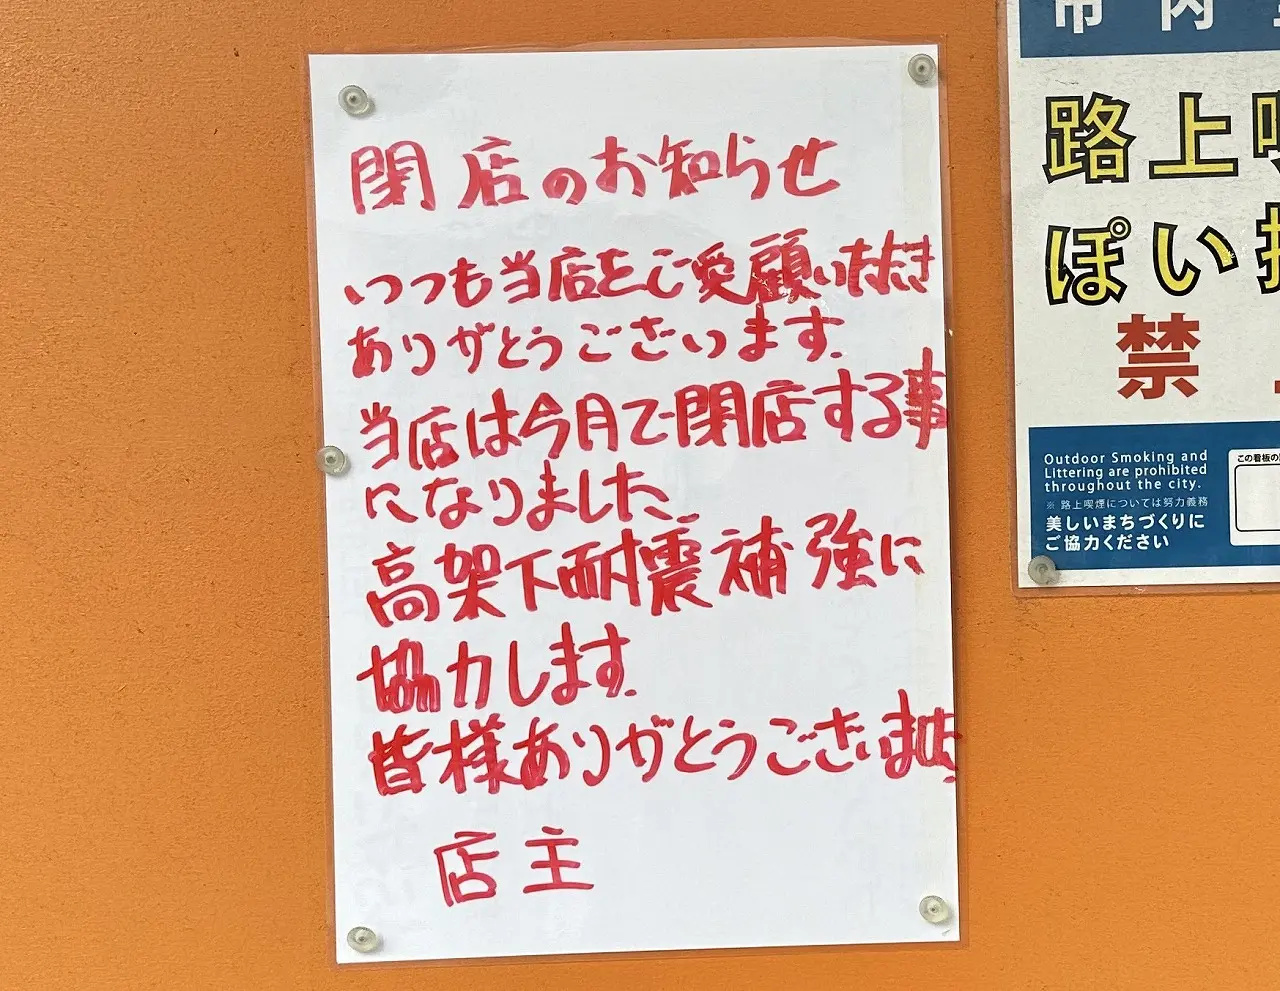 閉店のお知らせ
いつも当店をご愛顧いただき
ありがとうございます.
当店は今月で閉店する事
になりました.
高架下耐震補強に
協力します.
皆様ありがとうございました.
店主
市内
路上
ぽい
禁
Outdoor Smoking and
Littering are prohibited
throughout the city.
※ 路上喫煙については努力義務
美しいまちづくりに
ご協力ください
この看板の